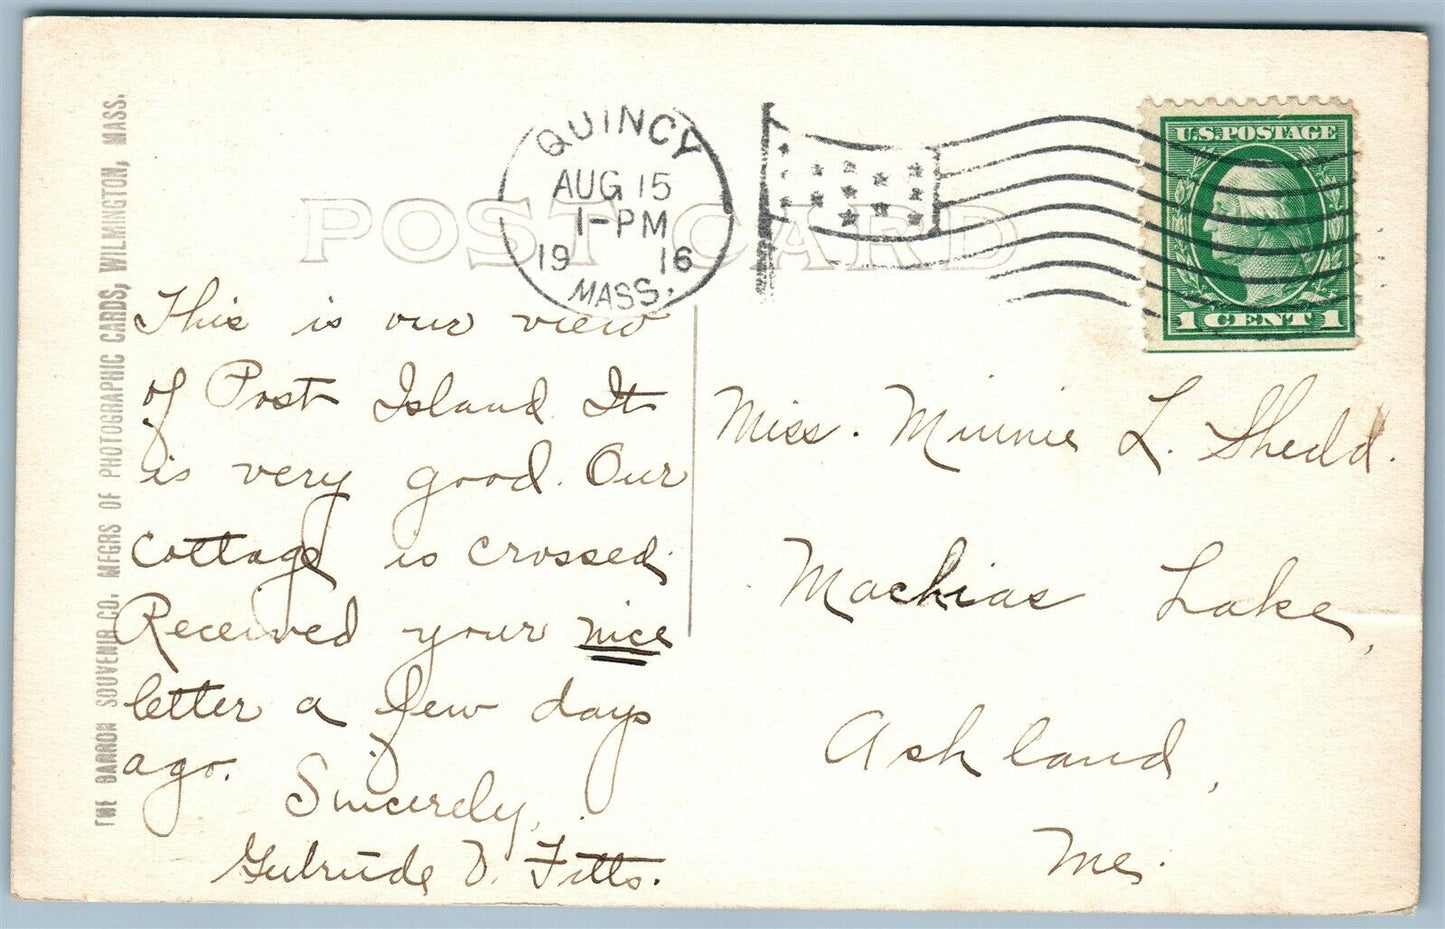 THE BARRON SOUVENIR CO. MFGRS OF PHOTOGRAPHIC CARDS, WILMINGTON, MASS.
POST CARD
QUINCY
AUG 15
1-PM
19 16
MASS.
U.S. POSTAGE
1 CENT 1
This is our view
of Post Island It
is very good. Our
cottage is crossed.
Received your nice
letter a few days
ago.
Sincerely,
Gertrude D. Fitts.
Miss. Minnie L. Shedd.
Machias Lake,
Ashland,
Me.